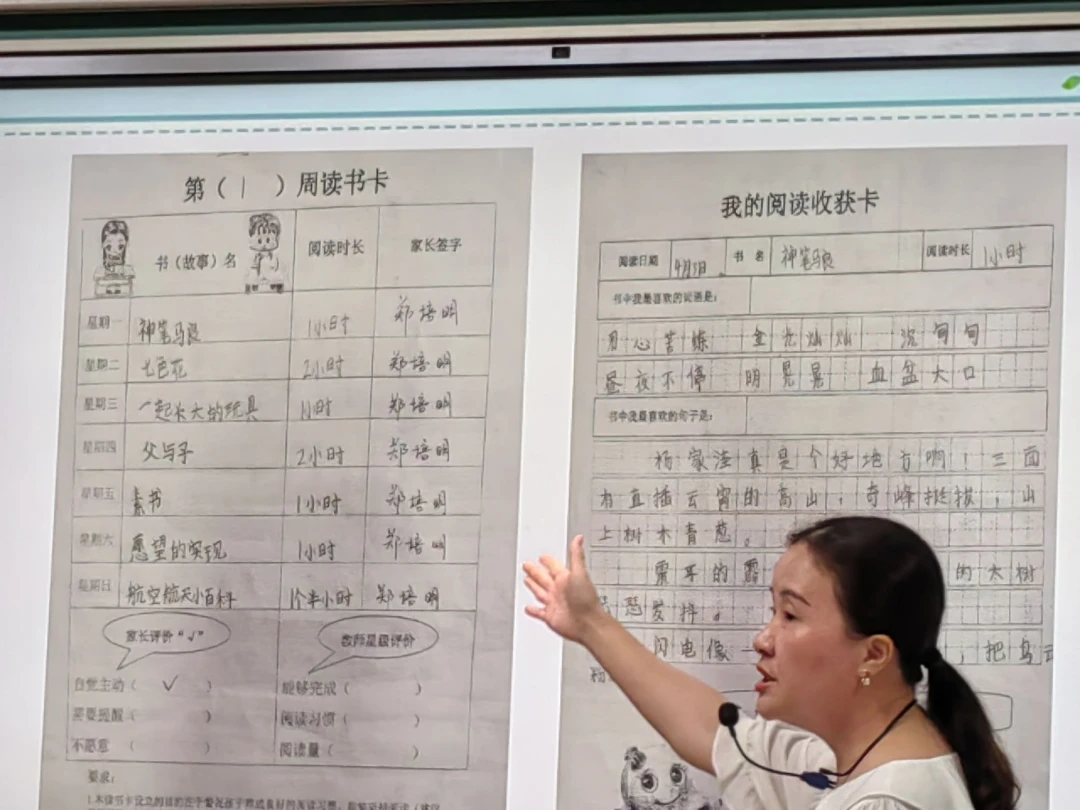 第（1）周读书卡
书（故事）名 阅读时长 家长签字
星期一 神笔马良 1小时 郑培明
星期二 七色花 2小时 郑培明
星期三 一起长大的玩具 1小时 郑培明
星期四 父与子 2小时 郑培明
星期五 素书 1小时 郑培明
星期六 愿望的实现 1小时 郑培明
星期日 航空航天小百科 1个半小时 郑培明
家长评价“√” 教师星级评价
自觉主动（ √ ） 能够完成（ ）
需要提醒（ ） 阅读习惯（ ）
不愿意（ ） 阅读量（ ）
要求：
我的阅读收获卡
阅读日期 书名 神笔马良 阅读时长 1小时
书中我最喜欢的词语是：
用心苦练 金光灿灿 沉甸甸
昼夜不停 明晃晃 血盆大口
书中我最喜欢的句子是：
杨家洼真是个好地方啊！三面
有直插云霄的高山，奇峰挺拔，山
上树木青葱。
震耳的 的大树
发抖。
闪电像一 ，把乌云